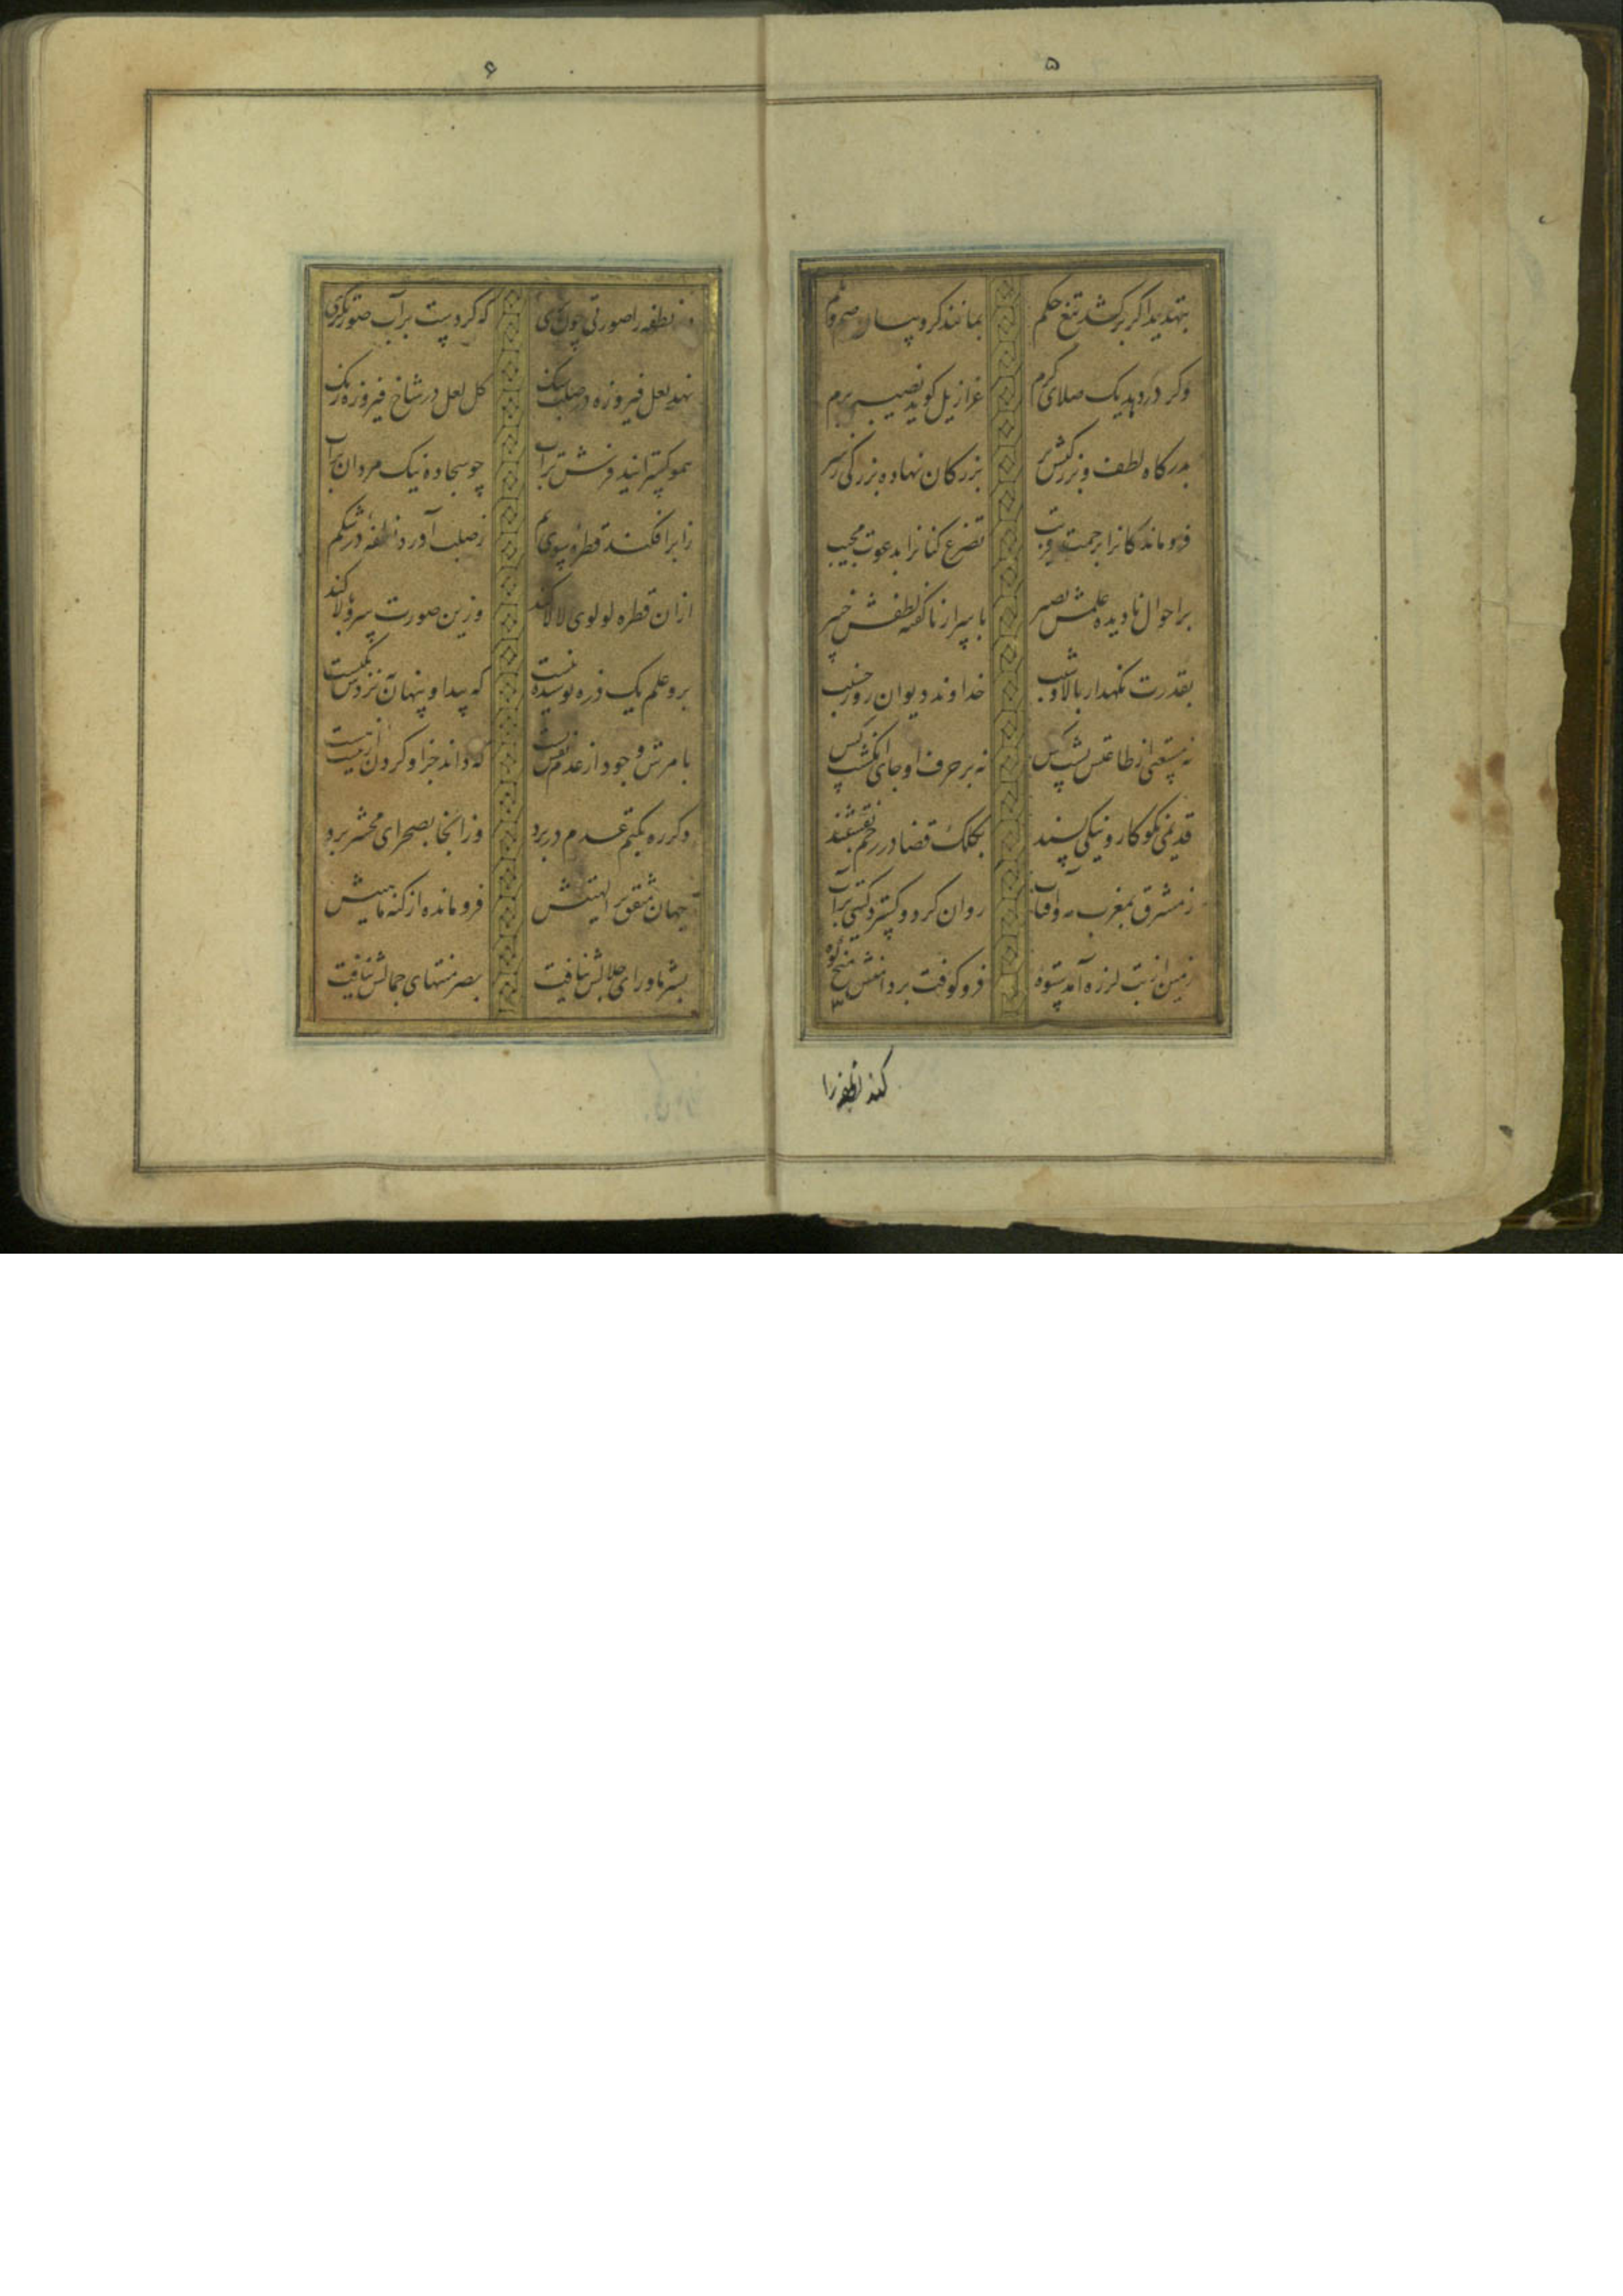 ۵
بتهدید اکر برکشد تیغ حکم
بمانند کروبیان صم و بکم
وکر دردهد یک صلای کرم
عزازیل کوید نصیبی برم
بدرکاه لطف و بزرکیش بر
بزرکان نهاده بزرکی ز سر
فروماندکانرا برحمت قریب
تضرع کنانرا بدعوت مجیب
بر احوال نادیده علمش بصیر
باسرار ناکفته لطفش خبیر
بقدرت نکهدار بالا و شیب
خداوند دیوان روز حسیب
نه مستغنی از طاعتش پشت کس
نه بر حرف او جای انکشت کس
قدیمی نکوکار و نیکی پسند
بکلک قضا در رحم نقشبند
ز مشرق بمغرب مه و آفتاب
روان کرد و کسترد کیتی بر آب
زمین از تب لرزه آمد ستوه
فرو کوفت بر دامنش میخ کوه
کند نطفه را
۶
نطفه را صورتی چون پری
که کردست بر آب صورتکری
نهد لعل فیروزه در صلب سنک
کل لعل در شاخ فیروزه رنک
همو کستراند فرش تراب
چو سجاده نیک مردان بر آب
ز ابر افکند قطره سوی یم
ز صلب آورد نطفه در شکم
از ان قطره لولوی لالا کند
وزین صورت سرو بالا کند
برو علم یک ذره پوشیده نیست
که پیدا و پنهان نزدش یکیست
بامرش وجود از عدم نقش بست
که داند جز او کردن از نیست هست
دکر ره بکتم عدم در برد
وز انجا بصحرای محشر برد
جهان متفق بر الهیتش
فرومانده از کنه ماهیتش
بشر ماورای جلالش نیافت
بصر منتهای جمالش نیافت